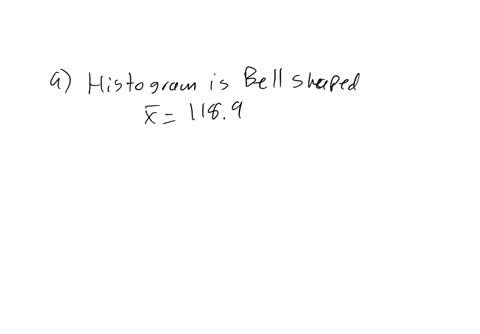 a) Histogram is Bell shaped
x̄ = 118.9